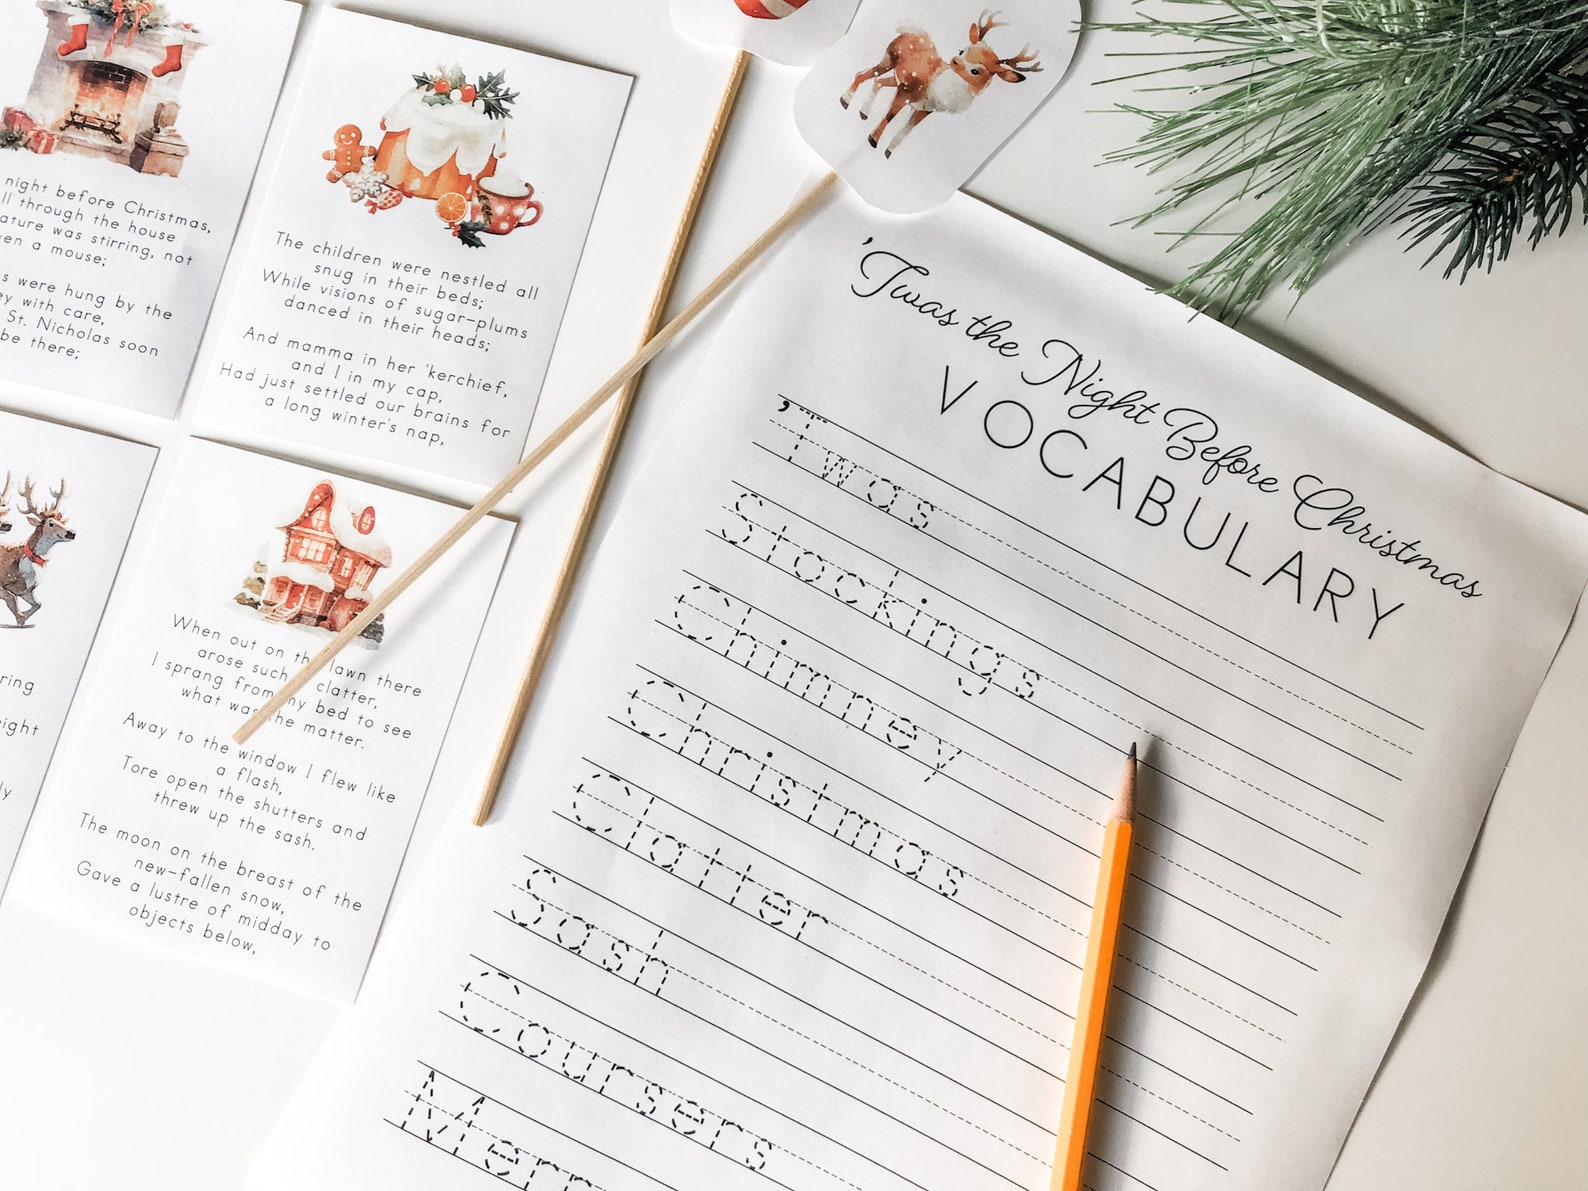 night before Christmas,
through the house
was stirring, not
a mouse;
were hung by the
with care,
St. Nicholas soon
be there;
The children were nestled all
snug in their beds;
While visions of sugar-plums
danced in their heads;
And mamma in her 'kerchief,
and I in my cap,
Had just settled our brains for
a long winter's nap,
When out on the lawn there
arose such a clatter,
I sprang from my bed to see
what was the matter.
Away to the window I flew like
a flash,
Tore open the shutters and
threw up the sash.
The moon on the breast of the
new-fallen snow,
Gave a lustre of midday to
objects below,
'Twas the Night Before Christmas
VOCABULARY
'Twas
Stockings
Chimney
Christmas
Clatter
Sash
Coursers